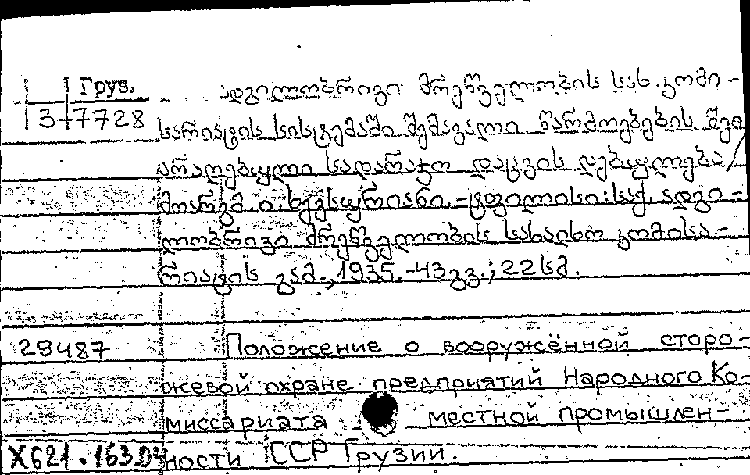 Груз. ადგილობრივი მრეწველობის სახ. კომი-
3-7728 სარიატის სისტემაში შემავალი წარმოებების შეი
არაღებული სადარაჯო დაცვის დებულება/
ი. სექსტრიანი.-ტფილისი: საქ. ადგი-
ლობრივი მრეწველობის სახალხო კომისა-
რიატის გამ., 1935.-43 გვ.; 22 სმ.
29487 Положение о вооружённой сторо-
жевой охране предприятий Народного Ко-
миссариата местной промышлен-
Х621.163.04 ности ССР Грузии.